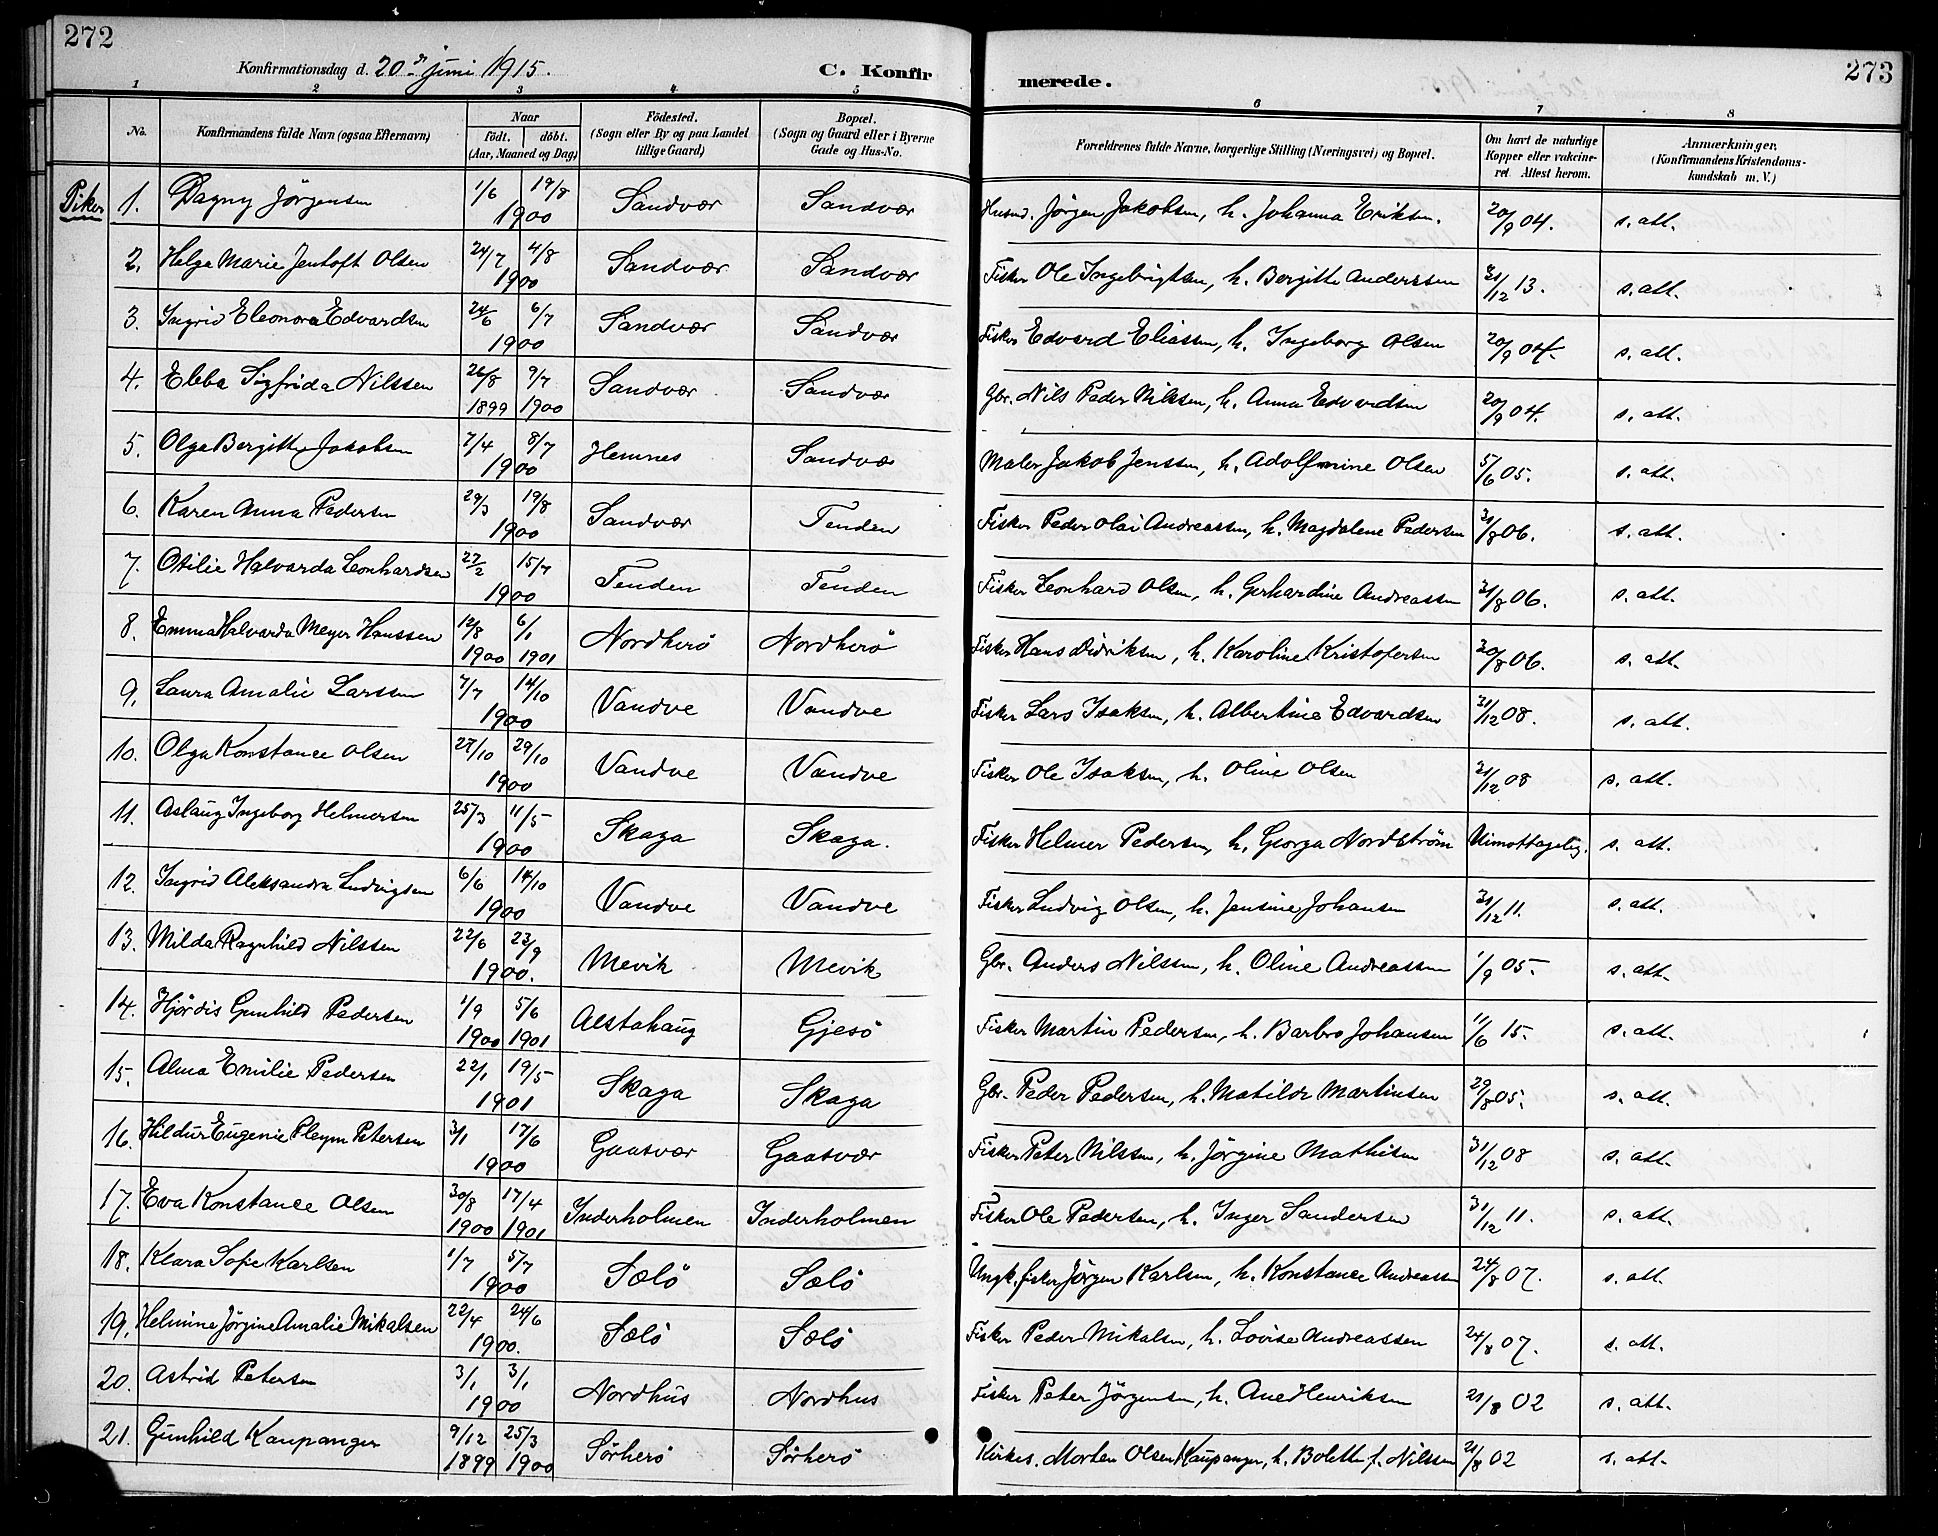 272
Konfirmationsdag d. 20de juni 1915.
C. Konfir
merede.
273
1 2 3 4 5 6 7 8
No.
Konfirmandens fulde Navn (ogsaa Efternavn)
Naar
födt. döbt.
(Aar, Maaned og Dag)
Födested.
(Sogn eller By og paa Landet
tillige Gaard)
Bopæl.
(Sogn og Gaard eller i Byerne
Gade og Hus-No.
Forældrenes fulde Navne, borgerlige Stilling (Næringsvei) og Bopæl.
Om havt de naturlige
Kopper eller vakcine-
ret. Attest herom.
Anmærkninger.
(Konfirmandens Kristendoms-
kundskab m. V.)
Piker
1. Dagny Jørgensen 1/6 19/8 1900 Sandvær Sandvær Husmd. Jørgen Jakobsen, h. Johanna Eriksen. 20/9 04. s. att.
2. Helga Marie Jentoft Olsen 24/7 4/8 1900 Sandvær Sandvær Fisker Ole Ingebrigtsen, h. Bergitte Anderssen 31/12 13. s. att.
3. Ingrid Eleonora Edvardsen 24/6 6/7 1900 Sandvær Sandvær Fisker Edvard Eliassen, h. Ingeborg Olsen 20/9 04. s. att.
4. Ebba Sigfrida Nilssen 26/8 1899 9/7 1900 Sandvær Sandvær Gbr. Nils Peder Nilssen, h. Anna Edvardsen 20/9 04. s. att.
5. Olga Bergitte Jakobsen 7/4 8/7 1900 Hemnes Sandvær Maler Jakob Jenssen, h. Adolfmine Olsen 5/6 05. s. att.
6. Karen Anna Pedersen 29/3 19/8 1900 Sandvær Tenden Fisker Peder Olai Andreassen, h. Magdalene Pedersen 31/8 06. s. att.
7. Otilie Halvarda Leonhardsen 27/2 15/7 1900 Tenden Tenden Fisker Leonhard Olsen, h. Gerhardine Andreassen 31/8 06. s. att.
8. Emma Halvarda Meyer Hanssen 12/8 1900 6/1 1901 Nordherö Nordherö Fisker Hans Didriksen, h. Karoline Kristofersen 30/8 06. s. att.
9. Laura Amalie Larssen 7/7 14/10 1900 Vandve Vandve Fisker Lars Isaksen, h. Albertine Edvardsen 31/12 08. s. att.
10. Olga Konstance Olsen 27/10 29/10 1900 Vandve Vandve Fisker Ole Isaksen, h. Oline Olsen 31/12 08 s. att.
11. Aslaug Ingeborg Helmersen 25/3 11/5 1900 Skaga Skaga. Fisker Helmer Pedersen, h. Georga Nordström Uimottagelig. s. att.
12. Ingrid Aleksandra Ludvigsen 6/6 14/10 1900 Vandve Vandve Fisker Ludvig Olsen, h. Jensine Johansen 31/12 11. s. att.
13. Milda Ragnhild Nilssen 22/6 23/9 1900. Mevik Mevik Gbr. Anders Nilssen, h. Oline Andreassen 1/9 05. s. att.
14. Hjørdis Gunhild Pedersen 1/9 1900 5/6 1901 Alstahaug Gjesö Fisker Martin Pedersen, h. Barbro Johansen 11/6 15. s. att.
15. Alma Emilie Pedersen 22/1 19/5 1901 Skaga Skaga Gbr. Peder Pedersen, h. Matilde Martinsen 29/8 05. s. att.
16. Hildur Eugenie Pleym Petersen 3/1 17/6 1900 Gaasvær Gaasvær Fisker Peter Nilssen, h. Jörgine Mathisen 31/12 08 s. att.
17. Eva Konstance Olsen 30/8 1900 17/4 1901 Inderholmen Inderholmen Fisker Ole Pedersen, h. Inger Sandersen 31/12 11. s. att.
18. Klara Sofie Karlsen 1/7 5/7 1900 Sælö Sælö Ungk. fisker Jørgen Karlsen, h. Konstance Andreassen 24/8 07. s. att.
19. Helmine Jörgine Amalie Mikalsen 22/4 24/6 1900. Sælö Sælö Fisker Peder Mikalsen, h. Lovise Andreassen 24/8 07. s. att.
20. Astrid Petersen 3/1 3/1 1900 Nordhus Nordhus Fisker Peter Jörgensen, h. Ane Henriksen 21/8 02 s. att.
21. Gunhild Kaupanger 9/12 1899 25/3 1900 Sörherö Sörherö Kirkes. Morten Olsen Kaupanger, h. Bolette f. Nilssen 21/8 02 s. att.